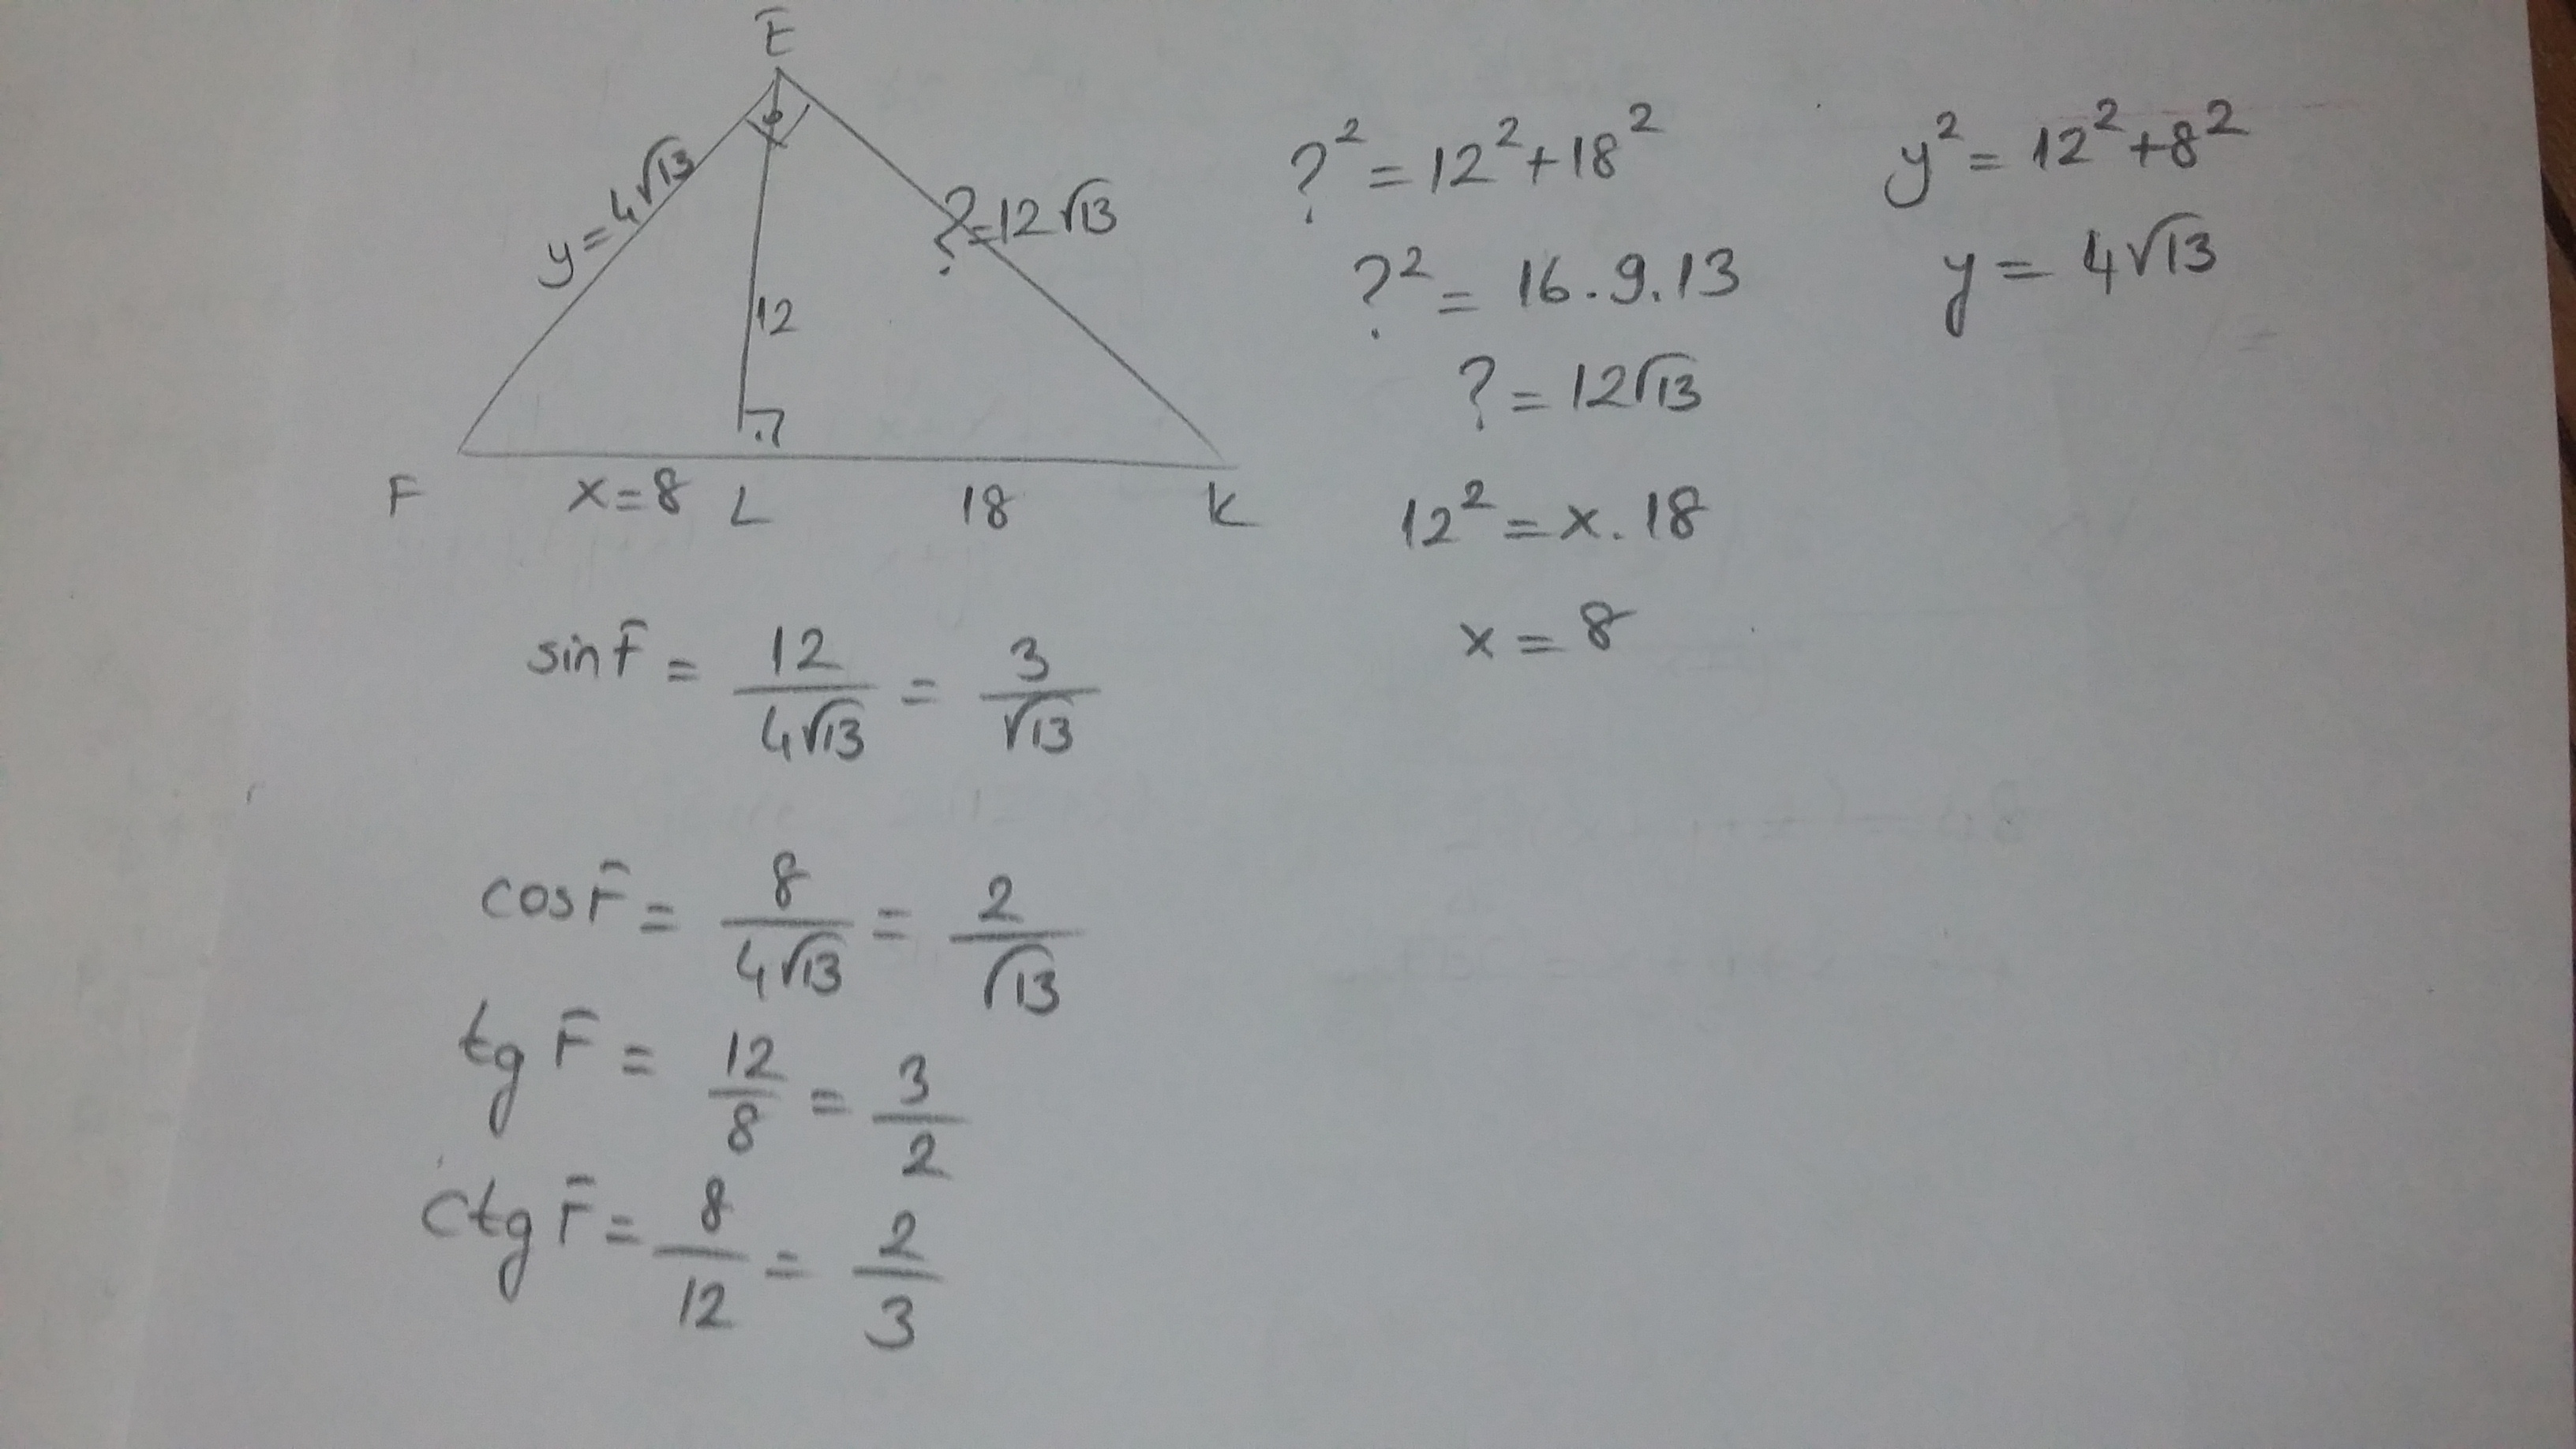 E
y = 4√13
? = 12√13
12
F x = 8 L 18 K
?² = 12² + 18²
?² = 16 . 9 . 13
? = 12√13
12² = x . 18
x = 8
y² = 12² + 8²
y = 4√13
sin F = 12/4√13 = 3/√13
cos F = 8/4√13 = 2/√13
tg F = 12/8 = 3/2
ctg F = 8/12 = 2/3